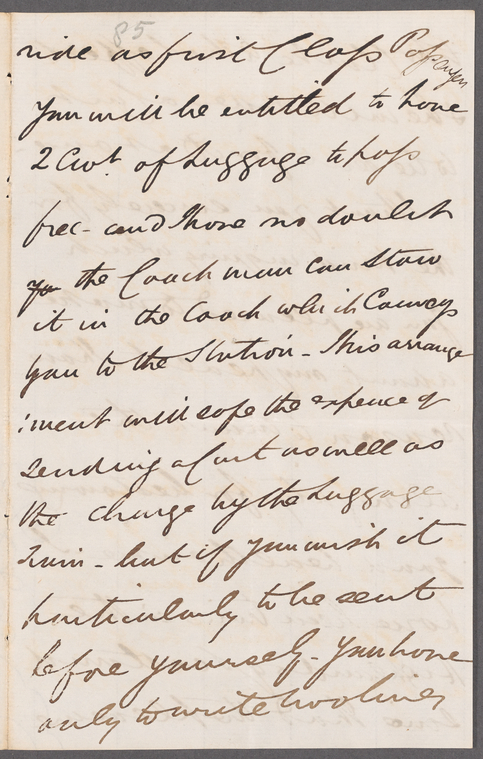 85
ride as first Class Passenger
You will be entitled to have
2 Cwt. of Luggage to pass
free - and I have no doubt
the Coach man can Stow
it in the Coach which Conveys
you to the Station - This arrange
:ment will safe the expence of
Sending a Cart as well as
the charge by the Luggage
Train - but if you wish it
particularly to be sent
before yourself - You have
only to write two lines